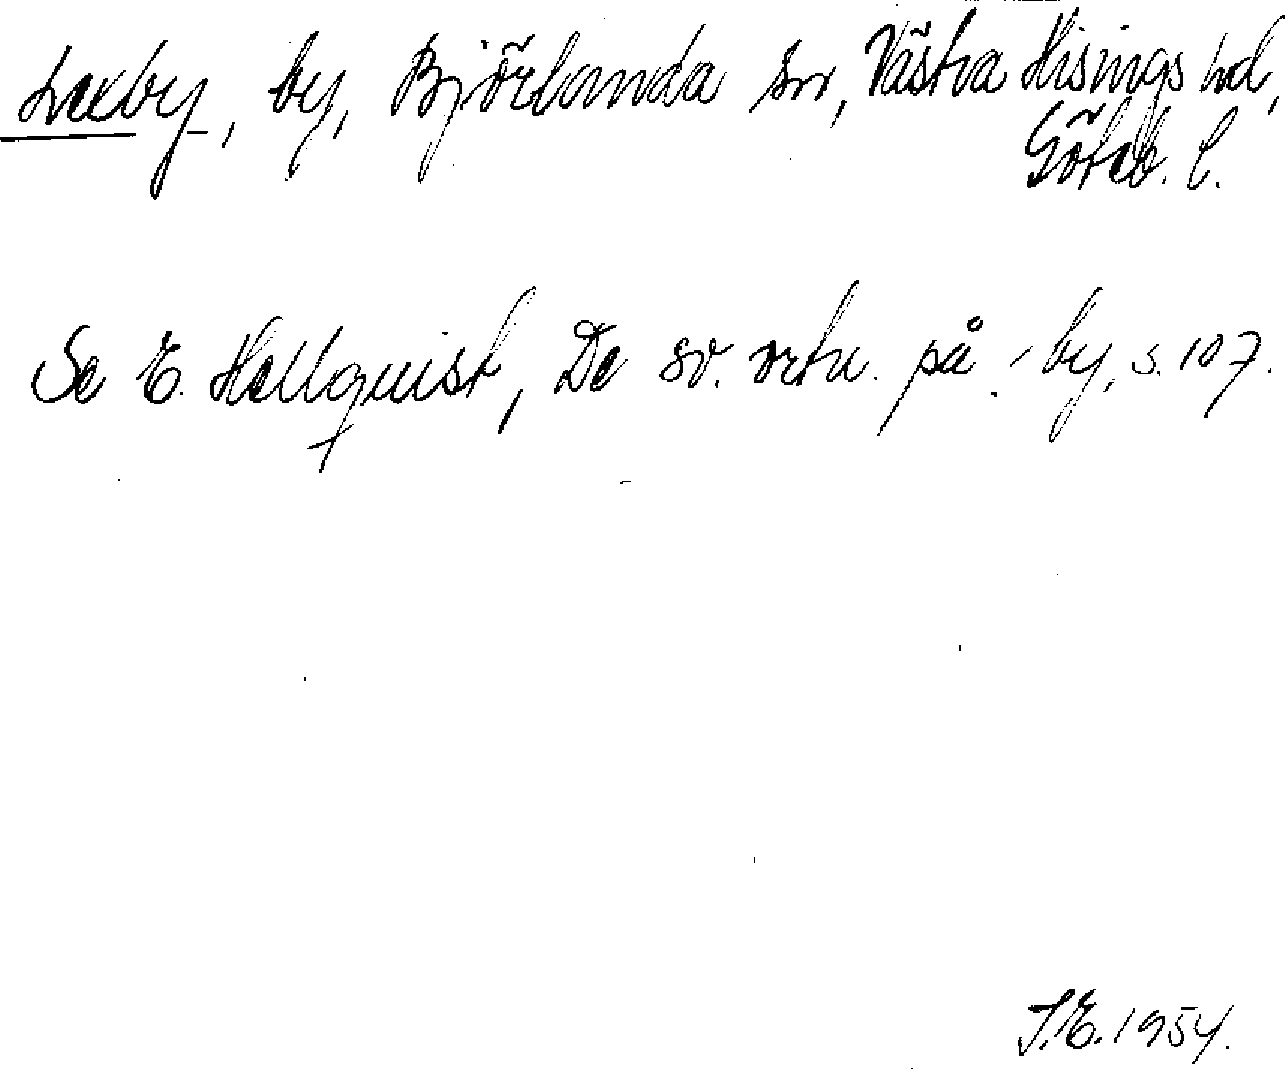 Lexby, by, Björlanda sn, Västra Hisings hd,
Göteb. l.
Se E. Hellquist, De sv. ortn. på -by, s. 107.
I.E. 1954.